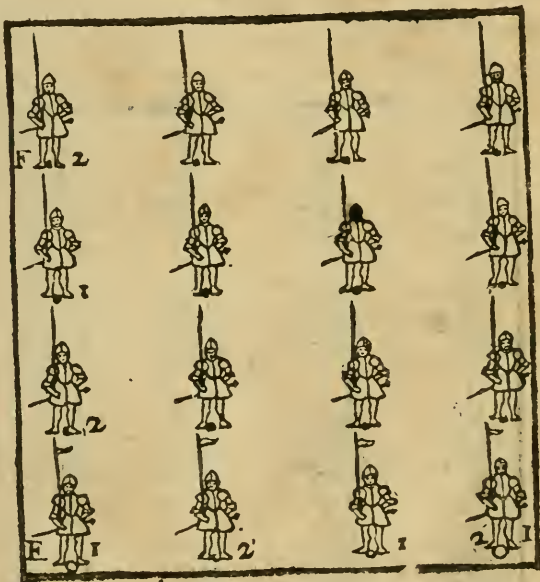 F 2
1
2
E 1 2 1 2 1